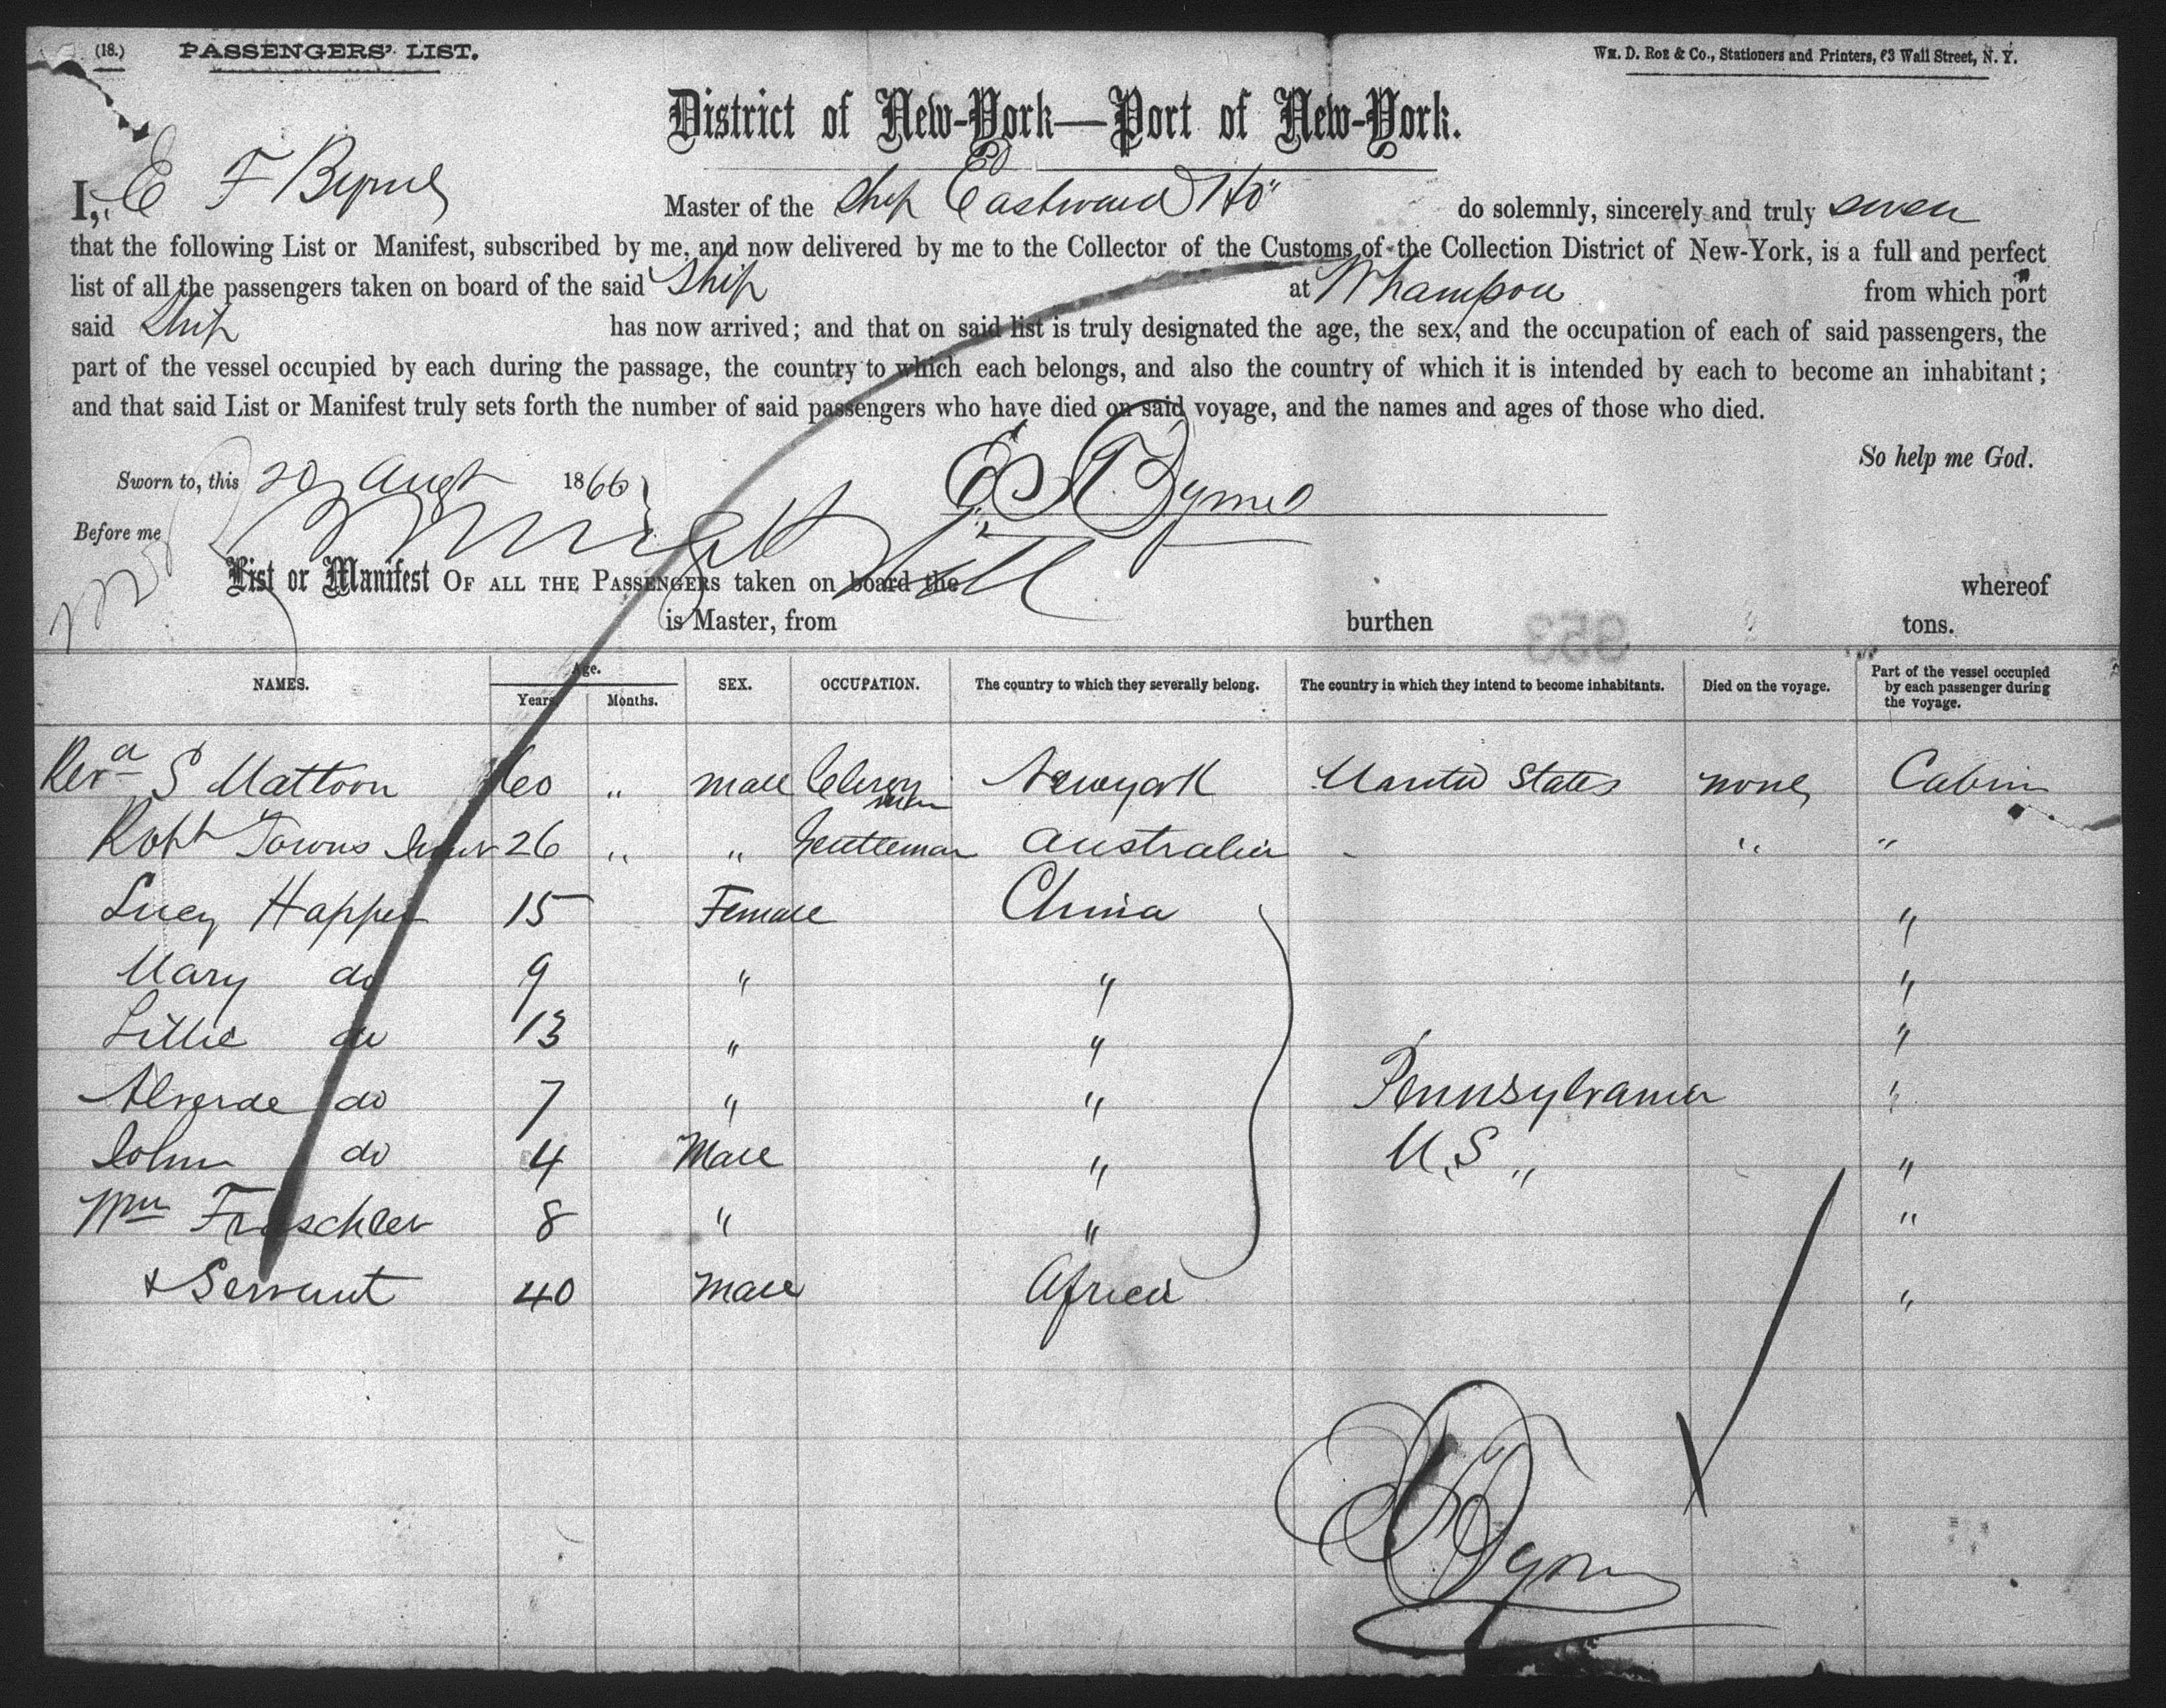 (18.) PASSENGERS' LIST. Wm. D. Roe & Co., Stationers and Printers, 63 Wall Street, N. Y.
District of New-York—Port of New-York.
I, E F Byrne Master of the Ship Eastward Ho" do solemnly, sincerely and truly swear
that the following List or Manifest, subscribed by me, and now delivered by me to the Collector of the Customs of the Collection District of New-York, is a full and perfect
list of all the passengers taken on board of the said Ship at Whampoa from which port
said Ship has now arrived; and that on said list is truly designated the age, the sex, and the occupation of each of said passengers, the
part of the vessel occupied by each during the passage, the country to which each belongs, and also the country of which it is intended by each to become an inhabitant;
and that said List or Manifest truly sets forth the number of said passengers who have died on said voyage, and the names and ages of those who died.
So help me God.
Sworn to, this 20 Augt 1866 } E F Byrne
Before me
List or Manifest OF ALL THE PASSENGERS taken on board the whereof
is Master, from burthen tons.
953
NAMES. Age. Years. Months. SEX. OCCUPATION. The country to which they severally belong. The country in which they intend to become inhabitants. Died on the voyage. Part of the vessel occupied by each passenger during the voyage.
Revd S Mattoon 60 " male Clergyman Newyork United States none Cabin
Robt Towns 26 " " Gentleman Australia - " "
Lucy Happer 15 Female China "
Mary do 9 " " "
Lillie do 13 " " "
Alverde do 7 " " Pennsylvania "
John do 4 Male " U.S " "
Wm 8 " " "
& Servant 40 male Africa "
Byrne